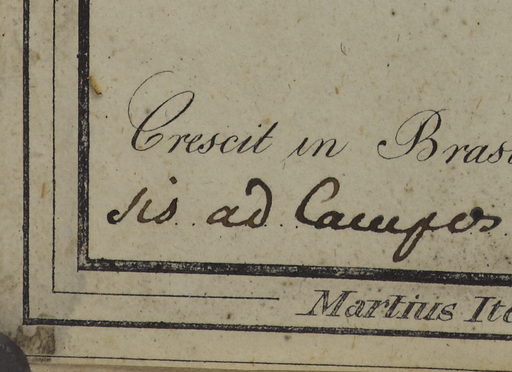 Crescit in Bras
sis ad Campos
Martius It